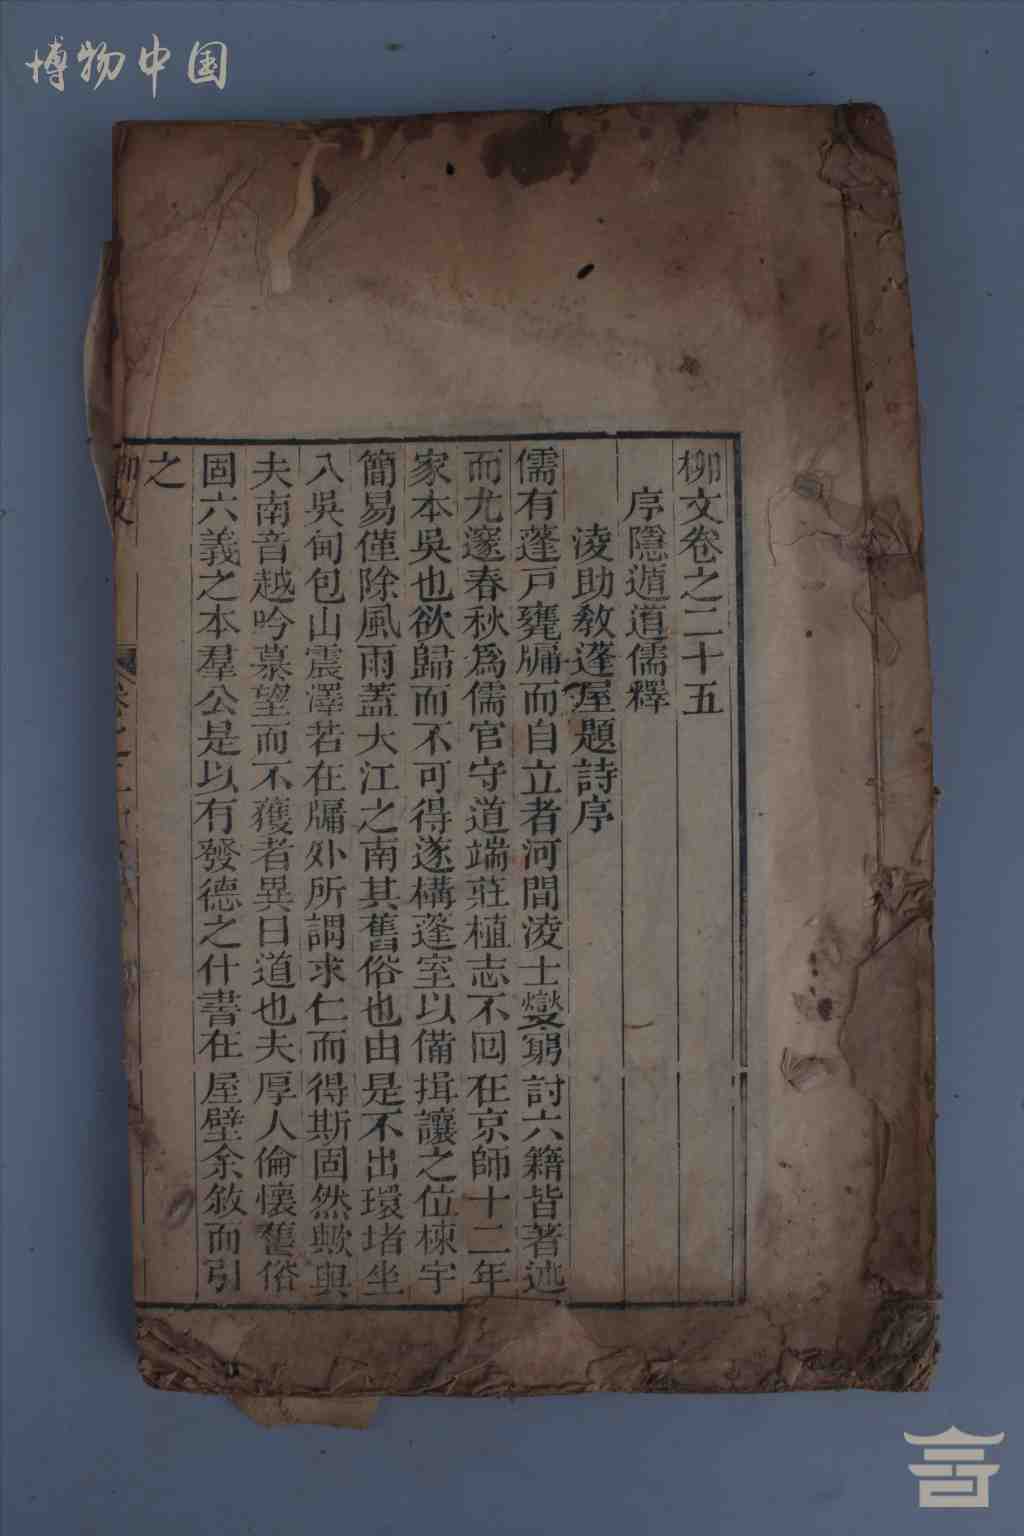 博物中国
柳文卷之二十五
序隱遁道儒釋
淩助教蓬屋題詩序
儒有蓬戸甕牖而自立者河間淩士燮窮討六籍皆著述
而尤邃春秋爲儒官守道端莊植志不回在京師十二年
家本吳也欲歸而不可得遂構蓬室以備揖讓之位棟宇
簡易僅除風雨蓋大江之南其舊俗也由是不出環堵坐
入吳甸包山震澤若在牖外所謂求仁而得斯固然歟與
夫南音越吟慕望而不獲者異日道也夫厚人倫懷舊俗
固六義之本羣公是以有發德之什書在屋壁余敘而引
之